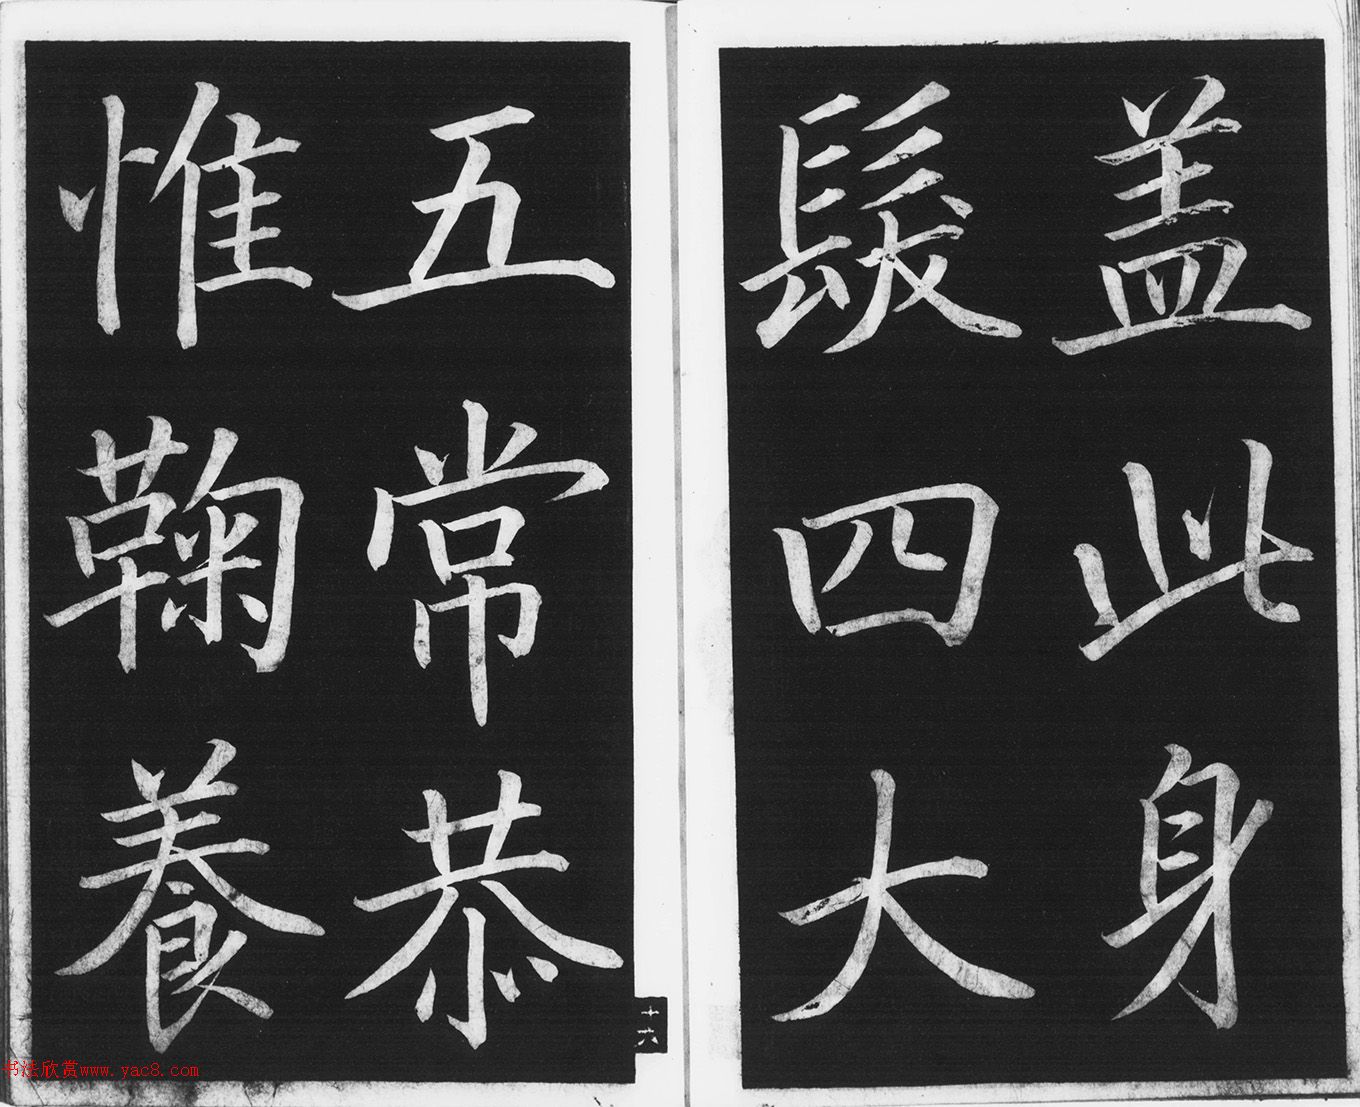 盖此身
髮四大
五常恭
惟鞠養
十六
书法欣赏www.yac8.com